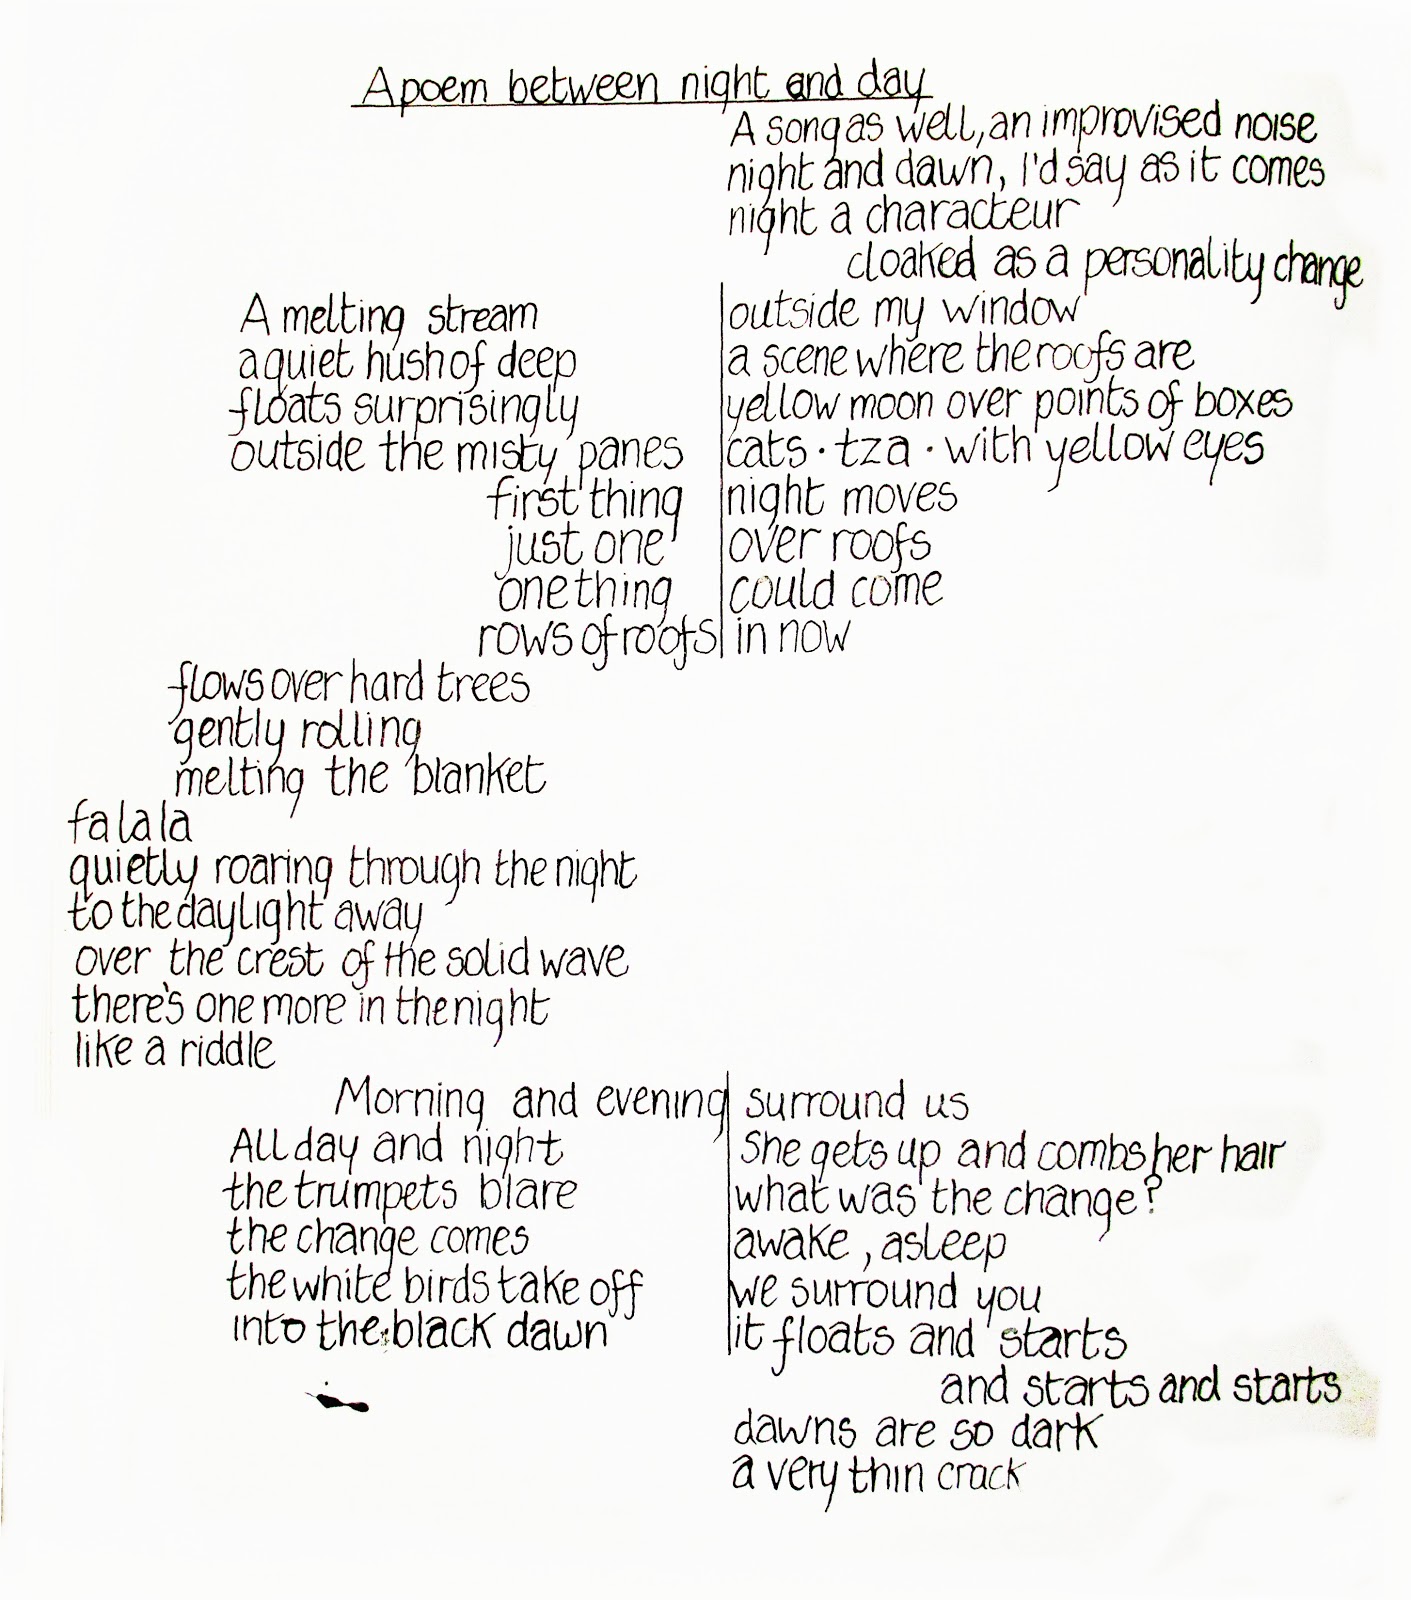 A poem between night and day
A song as well, an improvised noise
night and dawn, I'd say as it comes
night a characteur
cloaked as a personality change
A melting stream
a quiet hush of deep
floats surprisingly
outside the misty panes
first thing
just one
one thing
rows of roofs
outside my window
a scene where the roofs are
yellow moon over points of boxes
cats · tza · with yellow eyes
night moves
over roofs
could come
in now
flows over hard trees
gently rolling
melting the blanket
fa la la
quietly roaring through the night
to the daylight away
over the crest of the solid wave
there's one more in the night
like a riddle
Morning and evening
All day and night
the trumpets blare
the change comes
the white birds take off
into the black dawn
surround us
She gets up and combs her hair
what was the change?
awake, asleep
we surround you
it floats and starts
and starts and starts
dawns are so dark
a very thin crack